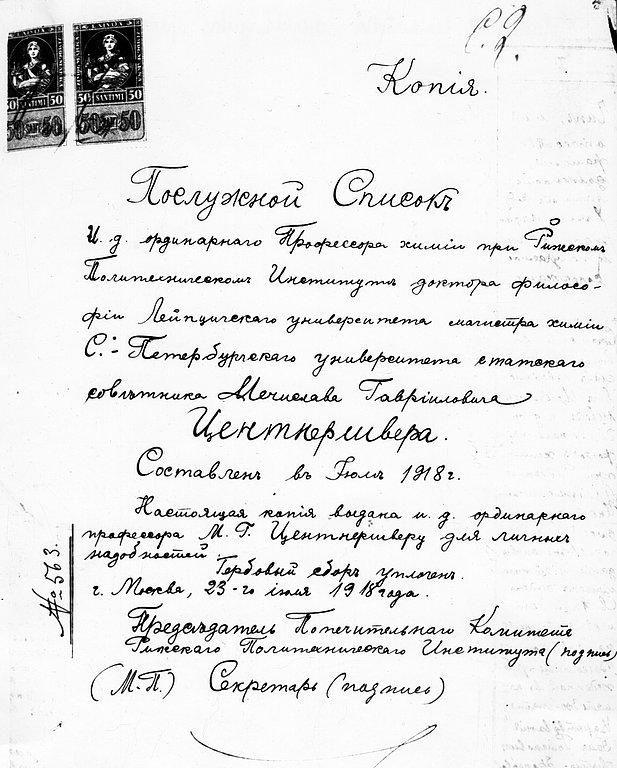 С. 2.
Копія.
LATVIJA LATVIJA
50 SANTIMI 50 50 SANTIMI 50
50 SANT 50 50 SANT 50
Послужной Списокъ
И. д. ординарнаго Профессора химіи при Рижскомъ
Политехническомъ Институтѣ доктора филосо-
фіи Лейпцигскаго университета магистра химіи
С.-Петербургскаго университета статскаго
совѣтника Мечислава Гавріиловича
Центнершвера.
Составленъ въ Іюлѣ 1918 г.
Настоящая копія выдана и. д. ординарнаго
профессора М. Г. Центнершверу для личныхъ
надобностей. Гербовый сборъ уплоченъ.
г. Москва, 23-го іюля 1918 года.
№ 563.
Предсѣдатель Попечительнаго Комитета
Рижскаго Политехническаго Института (подпись)
(М.П.) Секретарь (подпись)